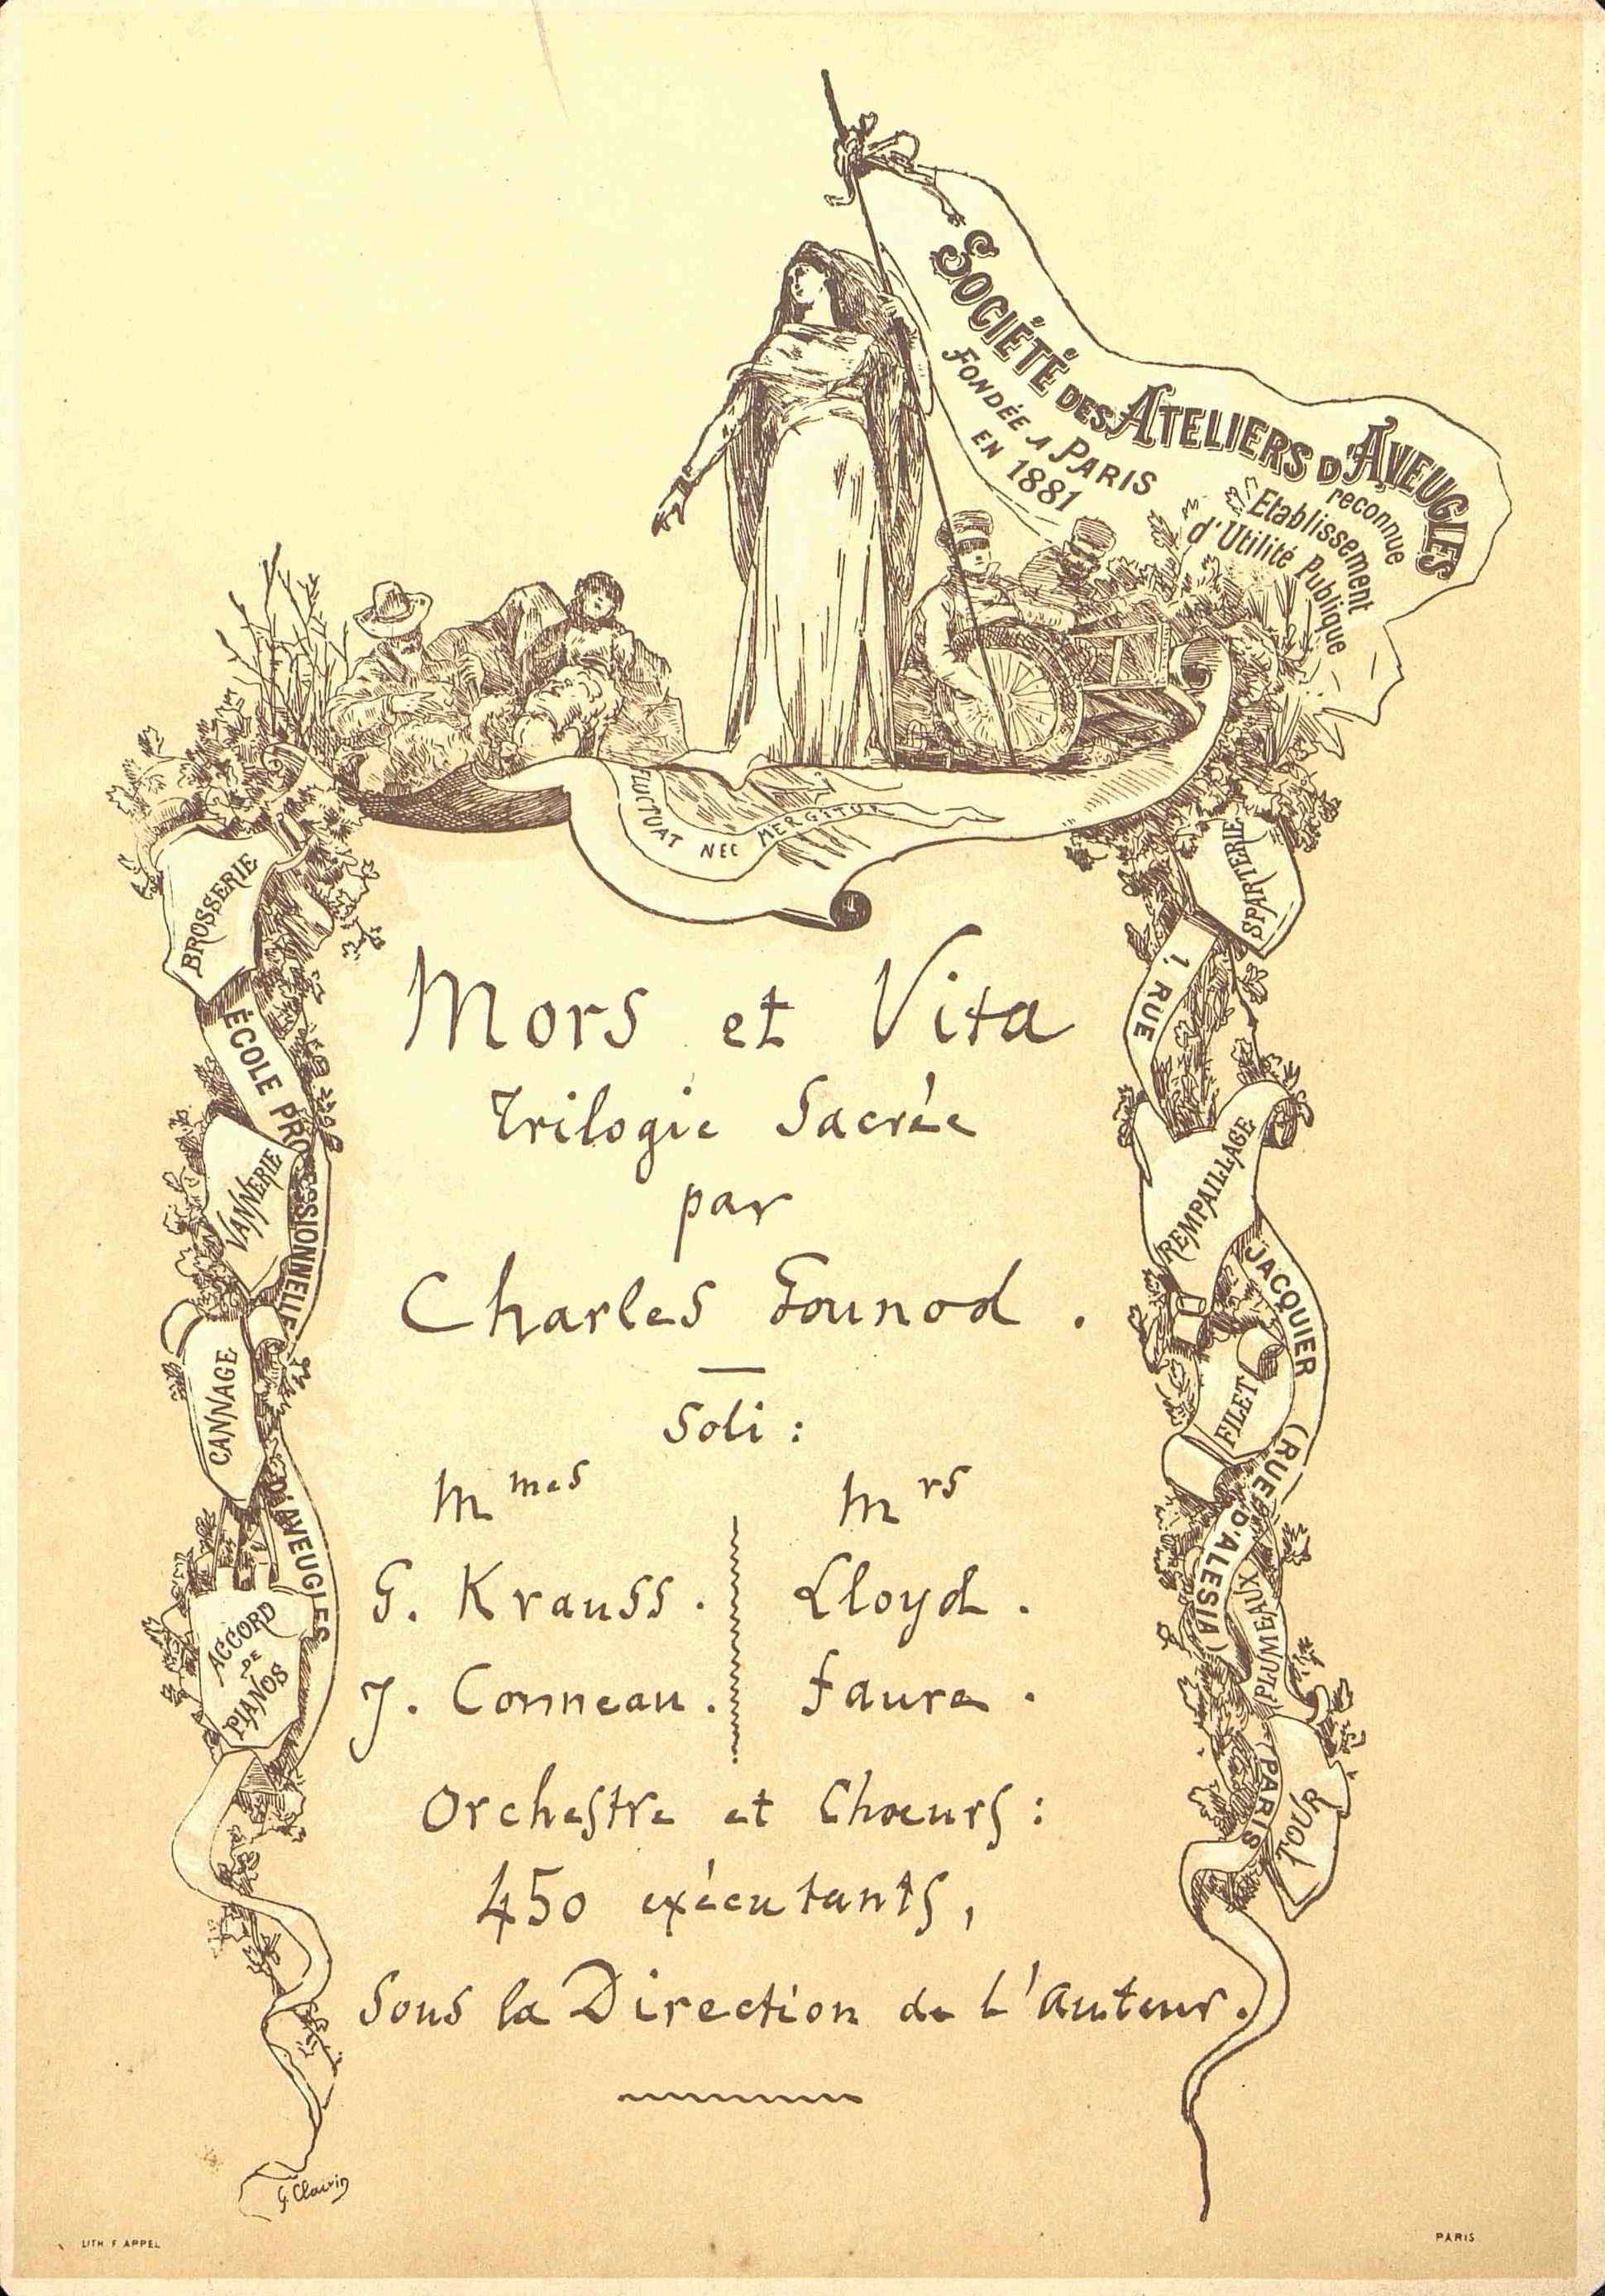 SOCIÉTÉ DES ATELIERS D'AVEUGLES
FONDÉE A PARIS
EN 1881
reconnue
Etablissement
d'Utilité Publique
FLUCTUAT NEC MERGITUR
BROSSERIE
ÉCOLE PROFESSIONNELLE
VANNERIE
CANNAGE
D'AVEUGLES
ACCORD
DE
PIANOS
SPARTERIE
1, RUE
REMPAILLAGE
JACQUIER
FILET
(RUE D'ALESIA)
PLUMEAUX
PARIS
TOUR
Mors et Vita
Trilogie Sacrée
par
Charles Gounod.
Soli :
Mmes Mrs
G. Krauss. Lloyd.
J. Conneau. Faure.
Orchestre et Chœurs :
450 exécutants,
Sous la Direction de L'auteur.
G. Clairin
LITH. F. APPEL
PARIS